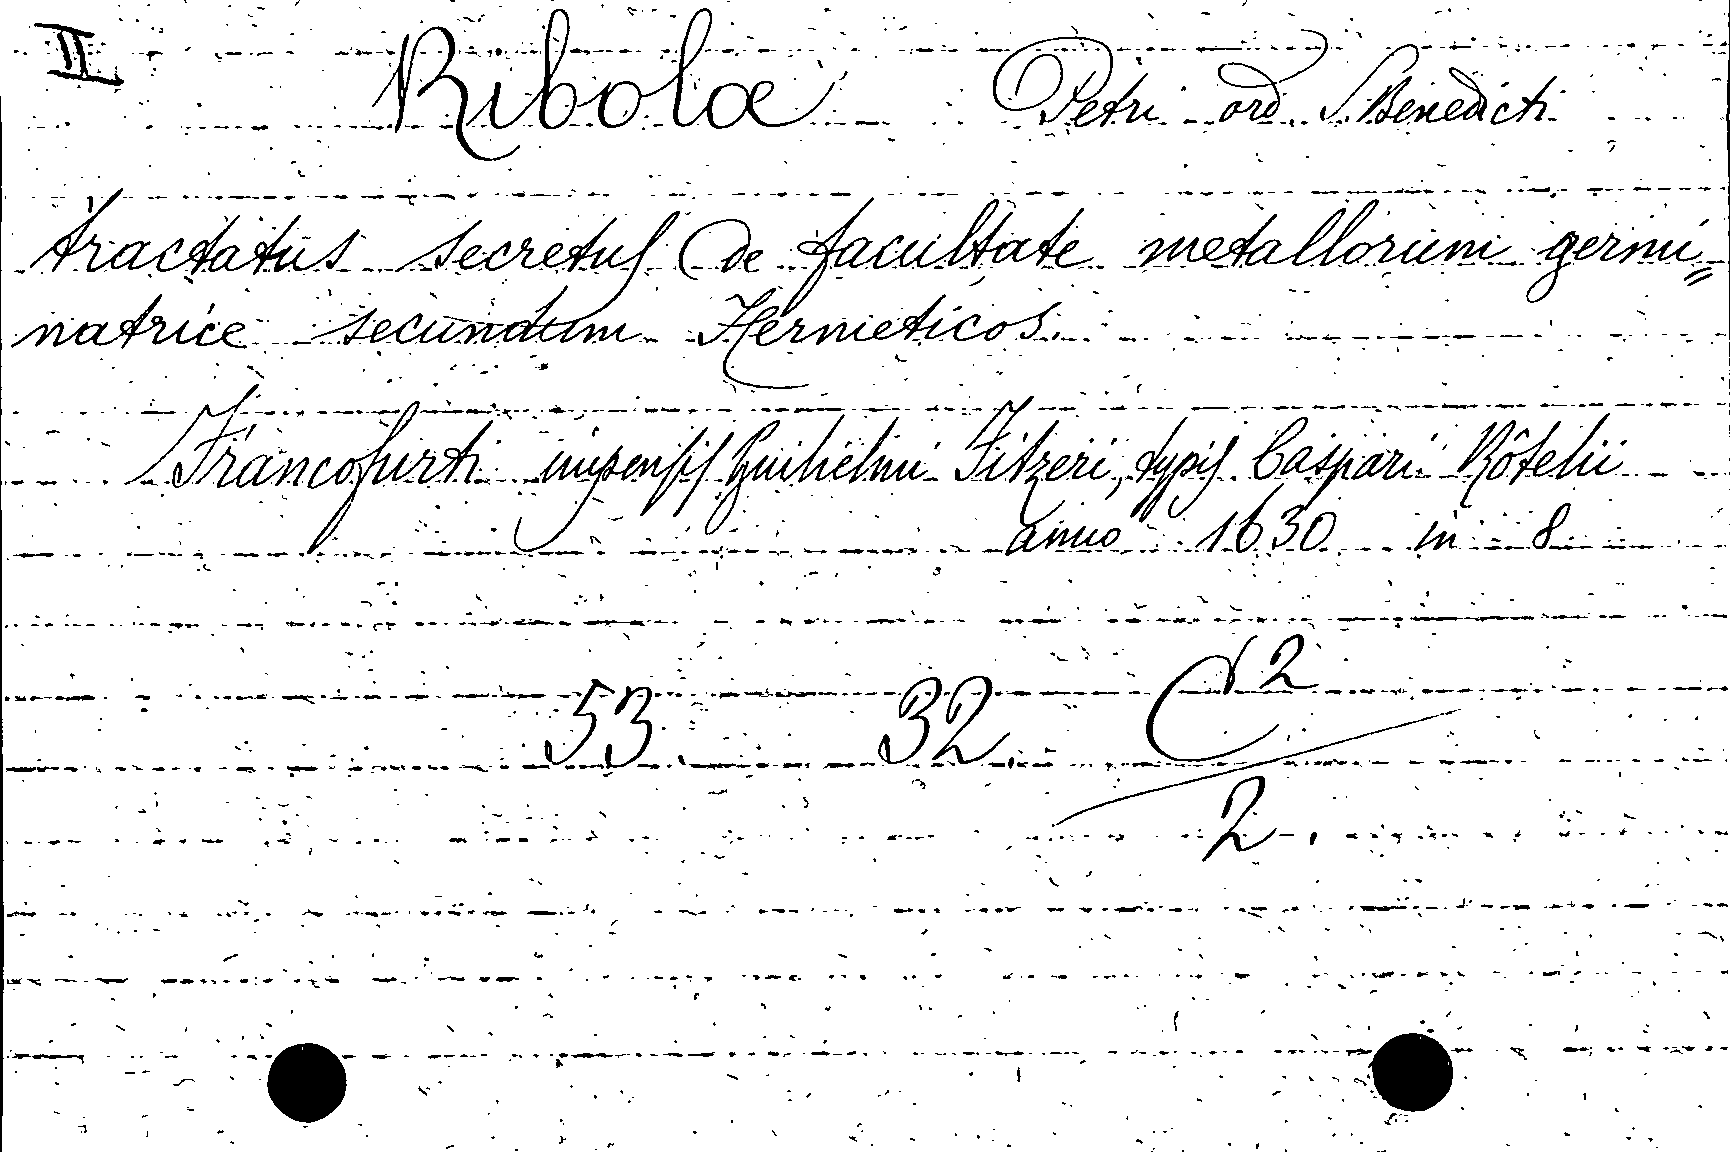 II Ribolæ Petri ord. S. Benedicti
tractatus secretus de facultate metallorum germi„
natrice secundum Hermeticos.
Francofurti impensis Guilielmi Fitzeri, typis Caspari Rôtelii
anno 1630 in 8
53 32 C 2
2